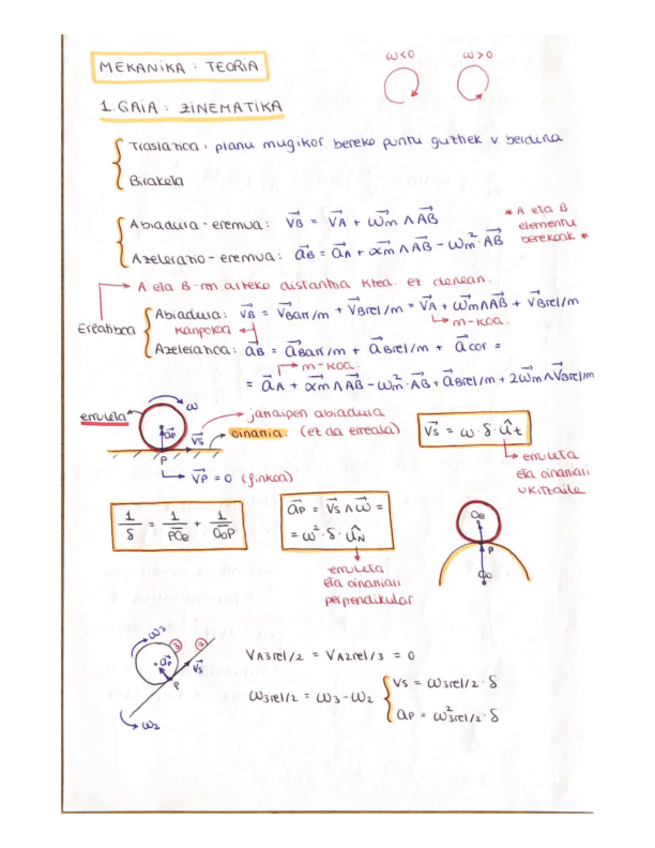 MEKANIKA : TEORIA
ω<0 ω>0
1. GAIA : ZINEMATIKA
Traslazioa : planu mugikor bereko puntu guztiek v berdina
Biraketa
Abiadura - eremua : v⃗B = v⃗A + ω⃗m ∧ A⃗B
Azelerazio - eremua : a⃗B = a⃗A + α⃗m ∧ A⃗B - ωm² · A⃗B
* A eta B elementu berekoak *
A eta B-ren arteko distantzia ktea. ez denean.
Erlatiboa
Abiadura : v⃗B = v⃗Barr/m + v⃗Brel/m = v⃗A + ω⃗m ∧ A⃗B + v⃗Brel/m
kanpokoa
m-koa.
Azelerazioa : a⃗B = a⃗Barr/m + a⃗Brel/m + a⃗cor =
m-koa.
= a⃗A + α⃗m ∧ A⃗B - ωm² · A⃗B + a⃗Brel/m + 2ω⃗m ∧ v⃗Brel/m
ω
erruleta
a⃗P
v⃗s
P
jarraipen abiadura
oinarria. (ez da erreala)
v⃗P = 0 (finkoa)
v⃗s = ω · δ · û t
erruleta
eta oinarriari
ukitzaile
1/δ = 1/POe + 1/OoP
a⃗P = v⃗s ∧ ω⃗ =
= ω² · δ · û N
erruleta
eta oinarriari
perpendikular
Oe
P
Oo
ω3
3
2
a⃗P
v⃗s
P
ω2
VA3rel/2 = VA2rel/3 = 0
ω3rel/2 = ω3 - ω2
vs = ω3rel/2 · δ
aP = ω²3rel/2 · δ